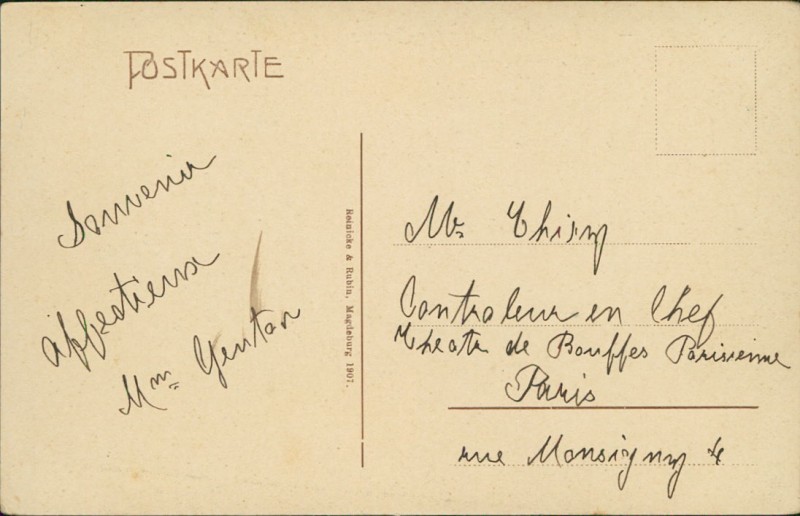 POSTKARTE
Souvenir
affectieux
Mme Gentar
Reinicke & Rubin, Magdeburg 1907.
Mr Thiry
Controleur en Chef
Theatr de Bouffes Parisienne
Paris
rue Monsigny 4